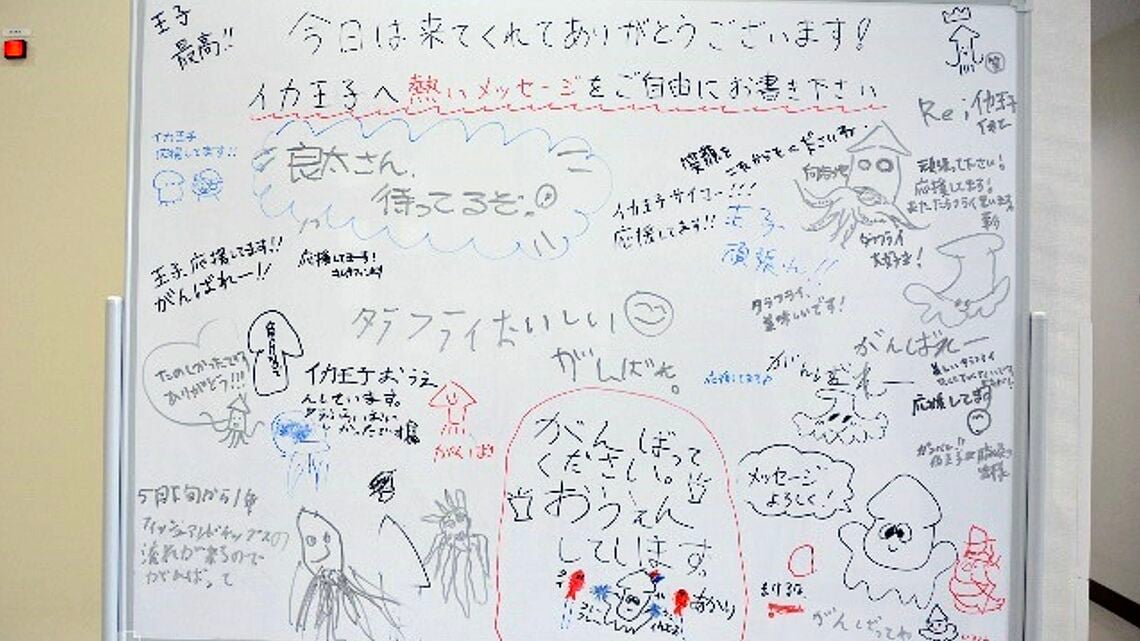 王子
最高!!
今日は来てくれてありがとうございます!
イカ王子へ熱いメッセージをご自由にお書き下さい
イカ王子
応援してます!!
良太さん、
待ってるぞ。
笑顔を
これからもください。
イカ王子サイコー!!!
応援してます!!
王子、
頑張れ!!
Rei
イカ王子
頑張って下さい!
応援してます!
タラフライ
大好き!
王子、応援してます!!
がんばれー!!
応援してまーす!
タラフライ、
美味しいです!
タラフライおいしい
がんばれ。
がんばれー
がんばれー
応援してます
応援してます
たのしかったです
ありがとう!!!
イカ王子おうえ
んしています。
がんばれ
がんばって
ください。
おうえん
してします。
あかり
メッセージ
よろしく!
5月下旬から1年
フィッシュアンドチップスの
流れが来るので
がんばって
まけるな
がんばってね